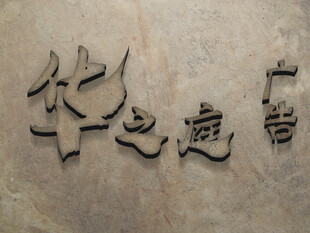 华之庭
广告